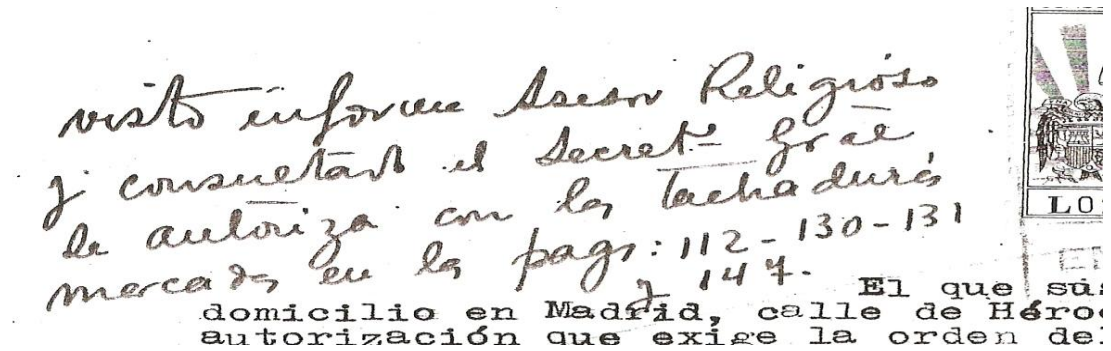 visto informe Asesor Religioso
y consultado el Secretº Gral
se autoriza con las tachaduras
marcadas en las pags: 112 - 130 - 131
y 147.
El que sus
domicilio en Madrid, calle de Héroe
autorización que exige la orden del
LO
EN